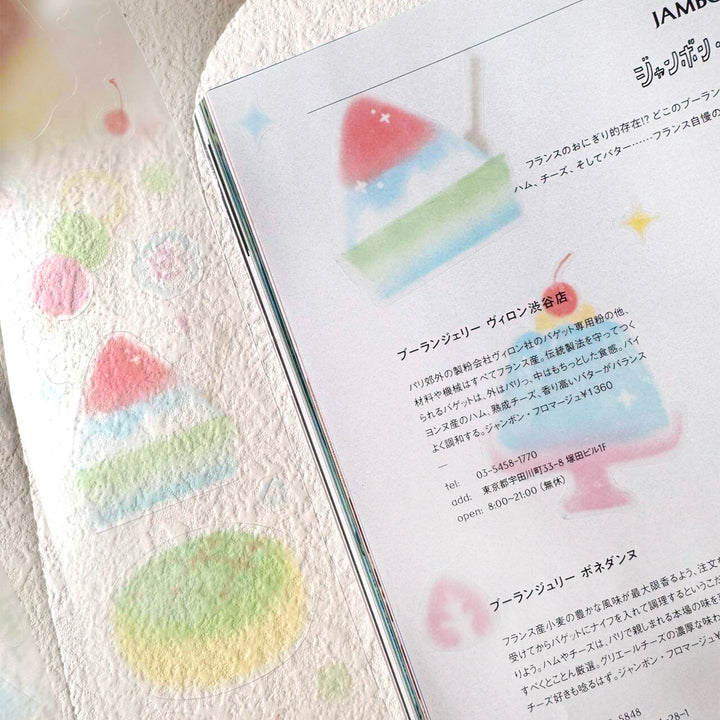 JAMBO
ジャンボン・
フランスのおにぎり的存在!? どこのブーラン
ハム、チーズ、そしてバター……フランス自慢の
ブーランジェリー ヴィロン渋谷店
パリ郊外の製粉会社ヴィロン社のバゲット専用粉の他、
材料や機械はすべてフランス産。伝統製法を守ってつく
られるバゲットは、外はパリっ、中はもちっとした食感。バイ
ヨンヌ産のハム、熟成チーズ、香り高いバターがバランス
よく調和する。ジャンボン・フロマージュ¥1360
tel: 03-5458-1770
add: 東京都宇田川町33-8 塚田ビル1F
open: 8:00~21:00 (無休)
ブーランジュリー ボネダンヌ
フランス産小麦の豊かな風味が最大限香るよう、注文を
受けてからバゲットにナイフを入れて調理するというこだ
りよう。ハムやチーズは、パリで親しまれる本場の味を
すべくとことん厳選。グリエールチーズの濃厚な味わ
チーズ好きも唸るはず。ジャンボン・フロマージュ¥
5848
-28-1